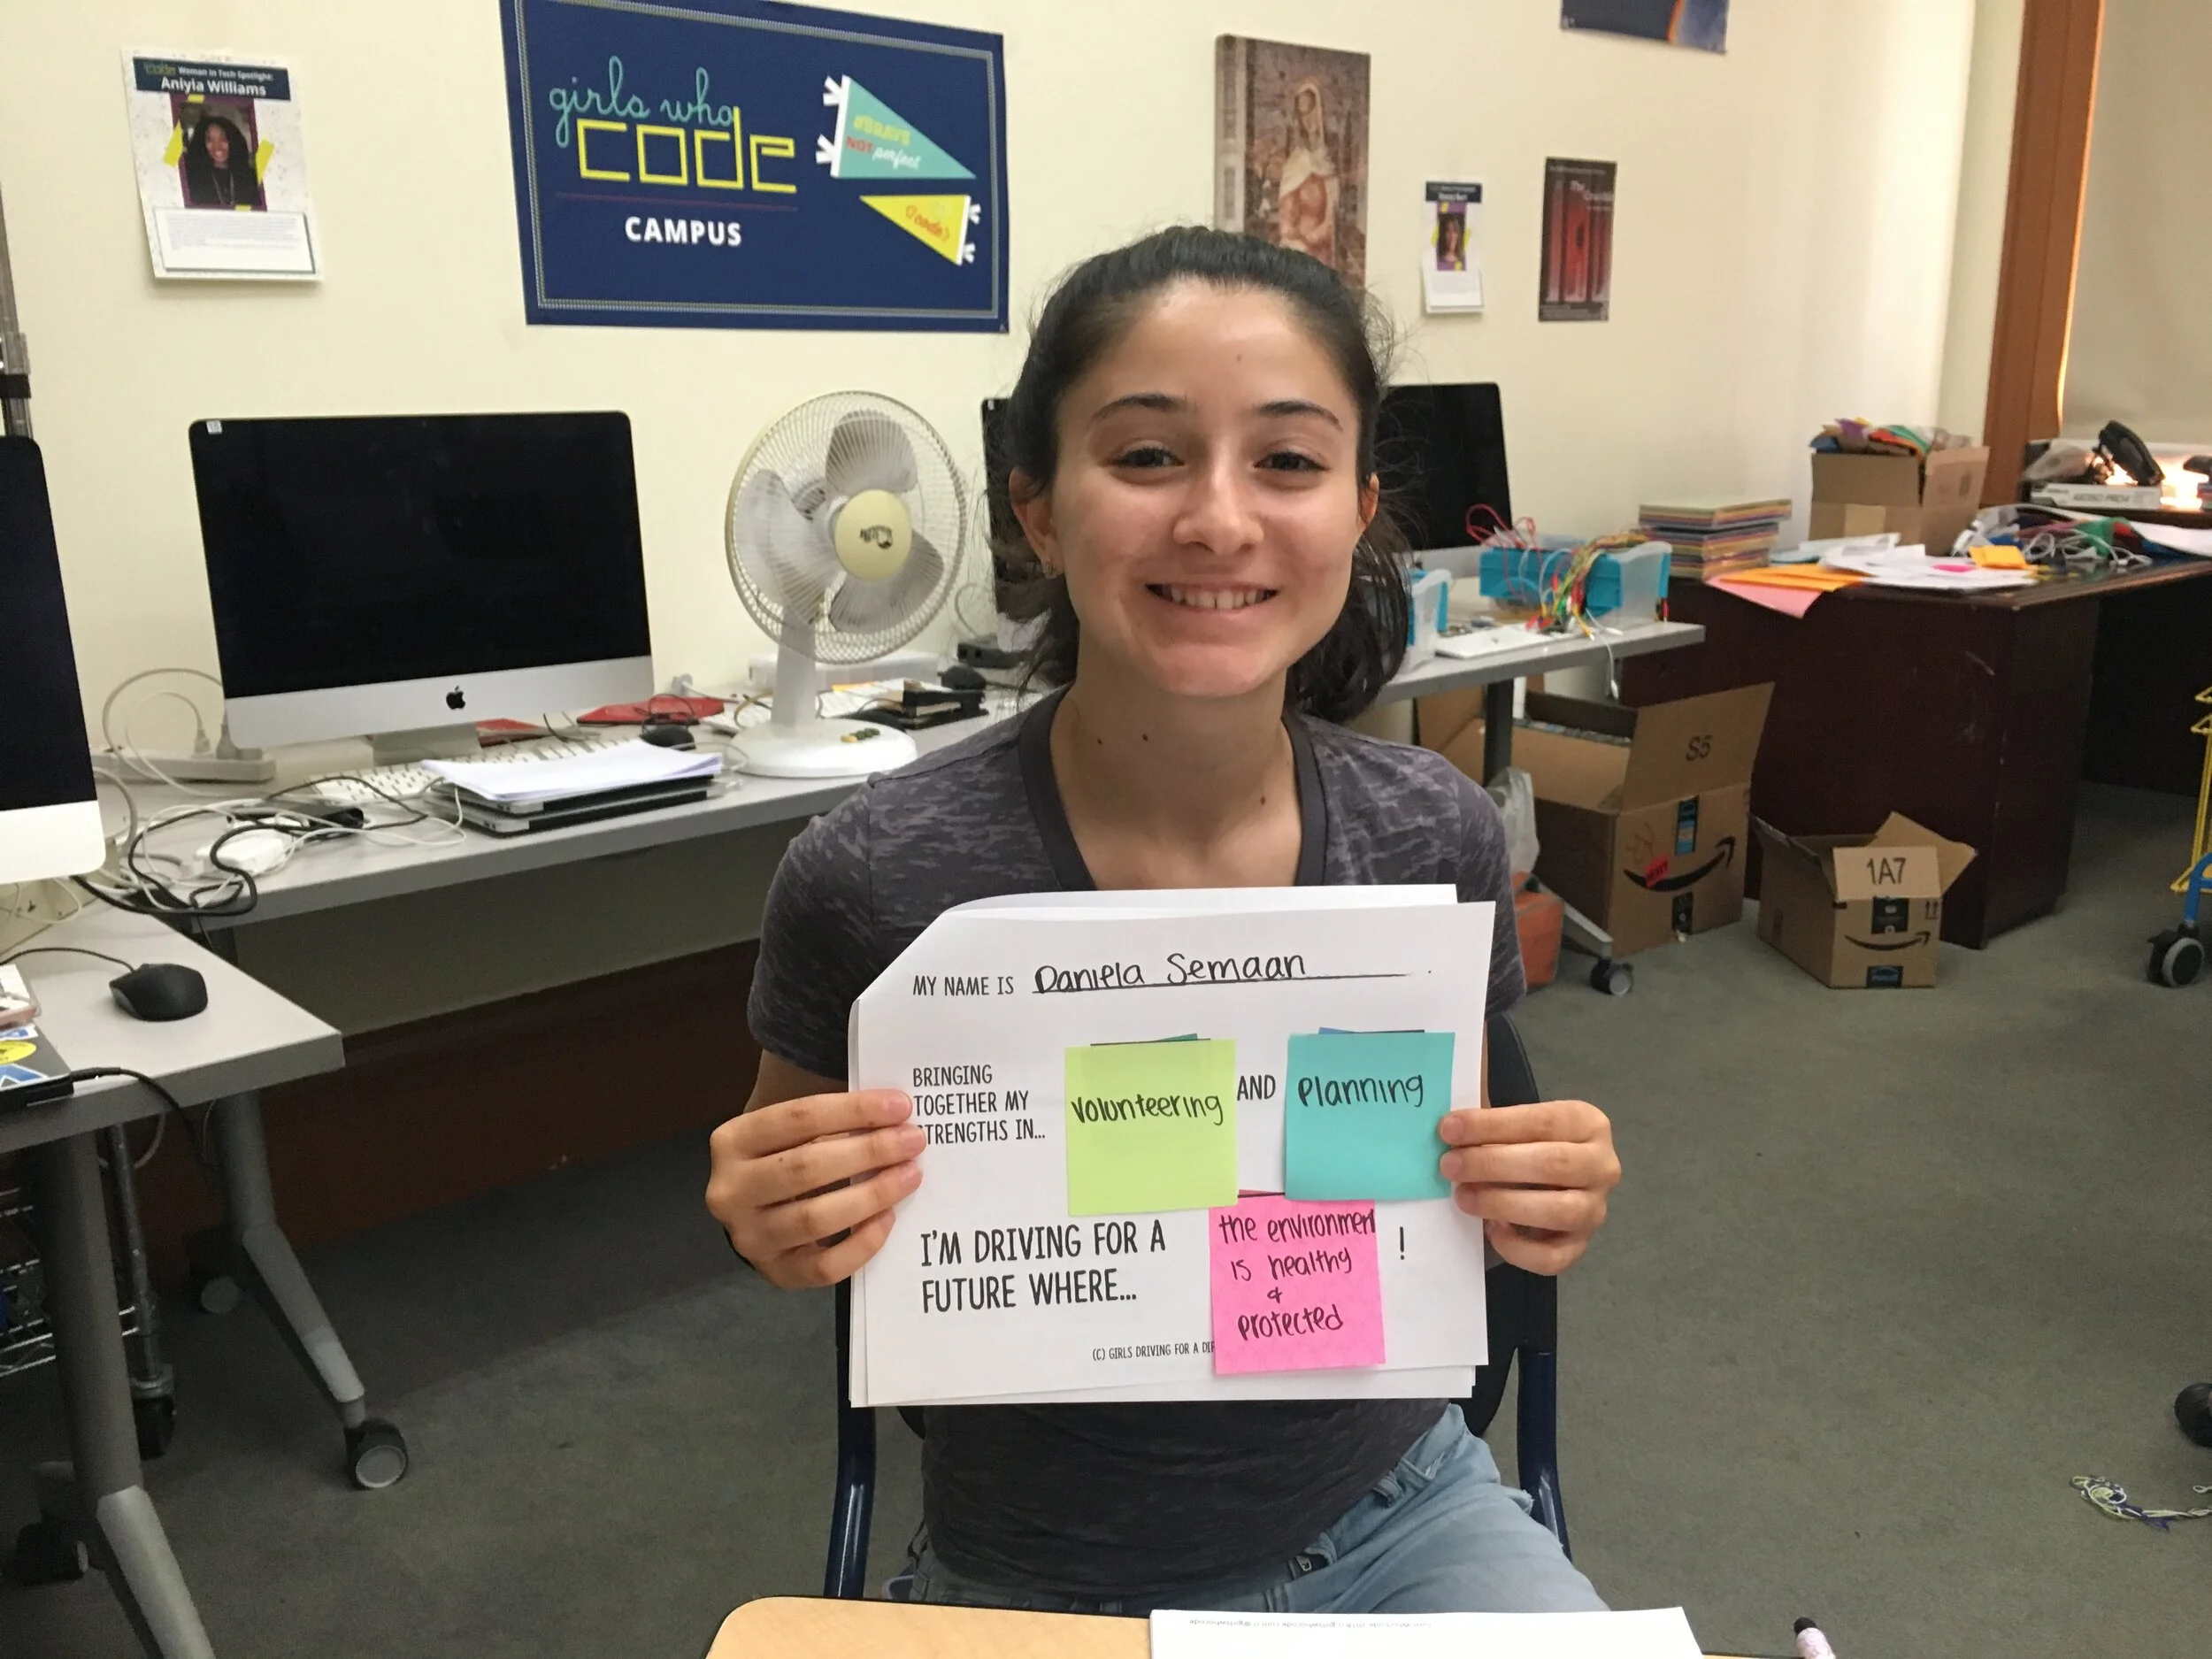 Women in Tech Spotlight:
Aniyia Williams
girls who
code
CAMPUS
#BRAVE
NOT perfect
code
S5
1A7
MY NAME IS Daniela Semaan .
BRINGING
TOGETHER MY
STRENGTHS IN...
Volunteering
AND
Planning
I'M DRIVING FOR A
FUTURE WHERE...
the environment
is healthy
&
protected
!
(C) GIRLS DRIVING FOR A DIF